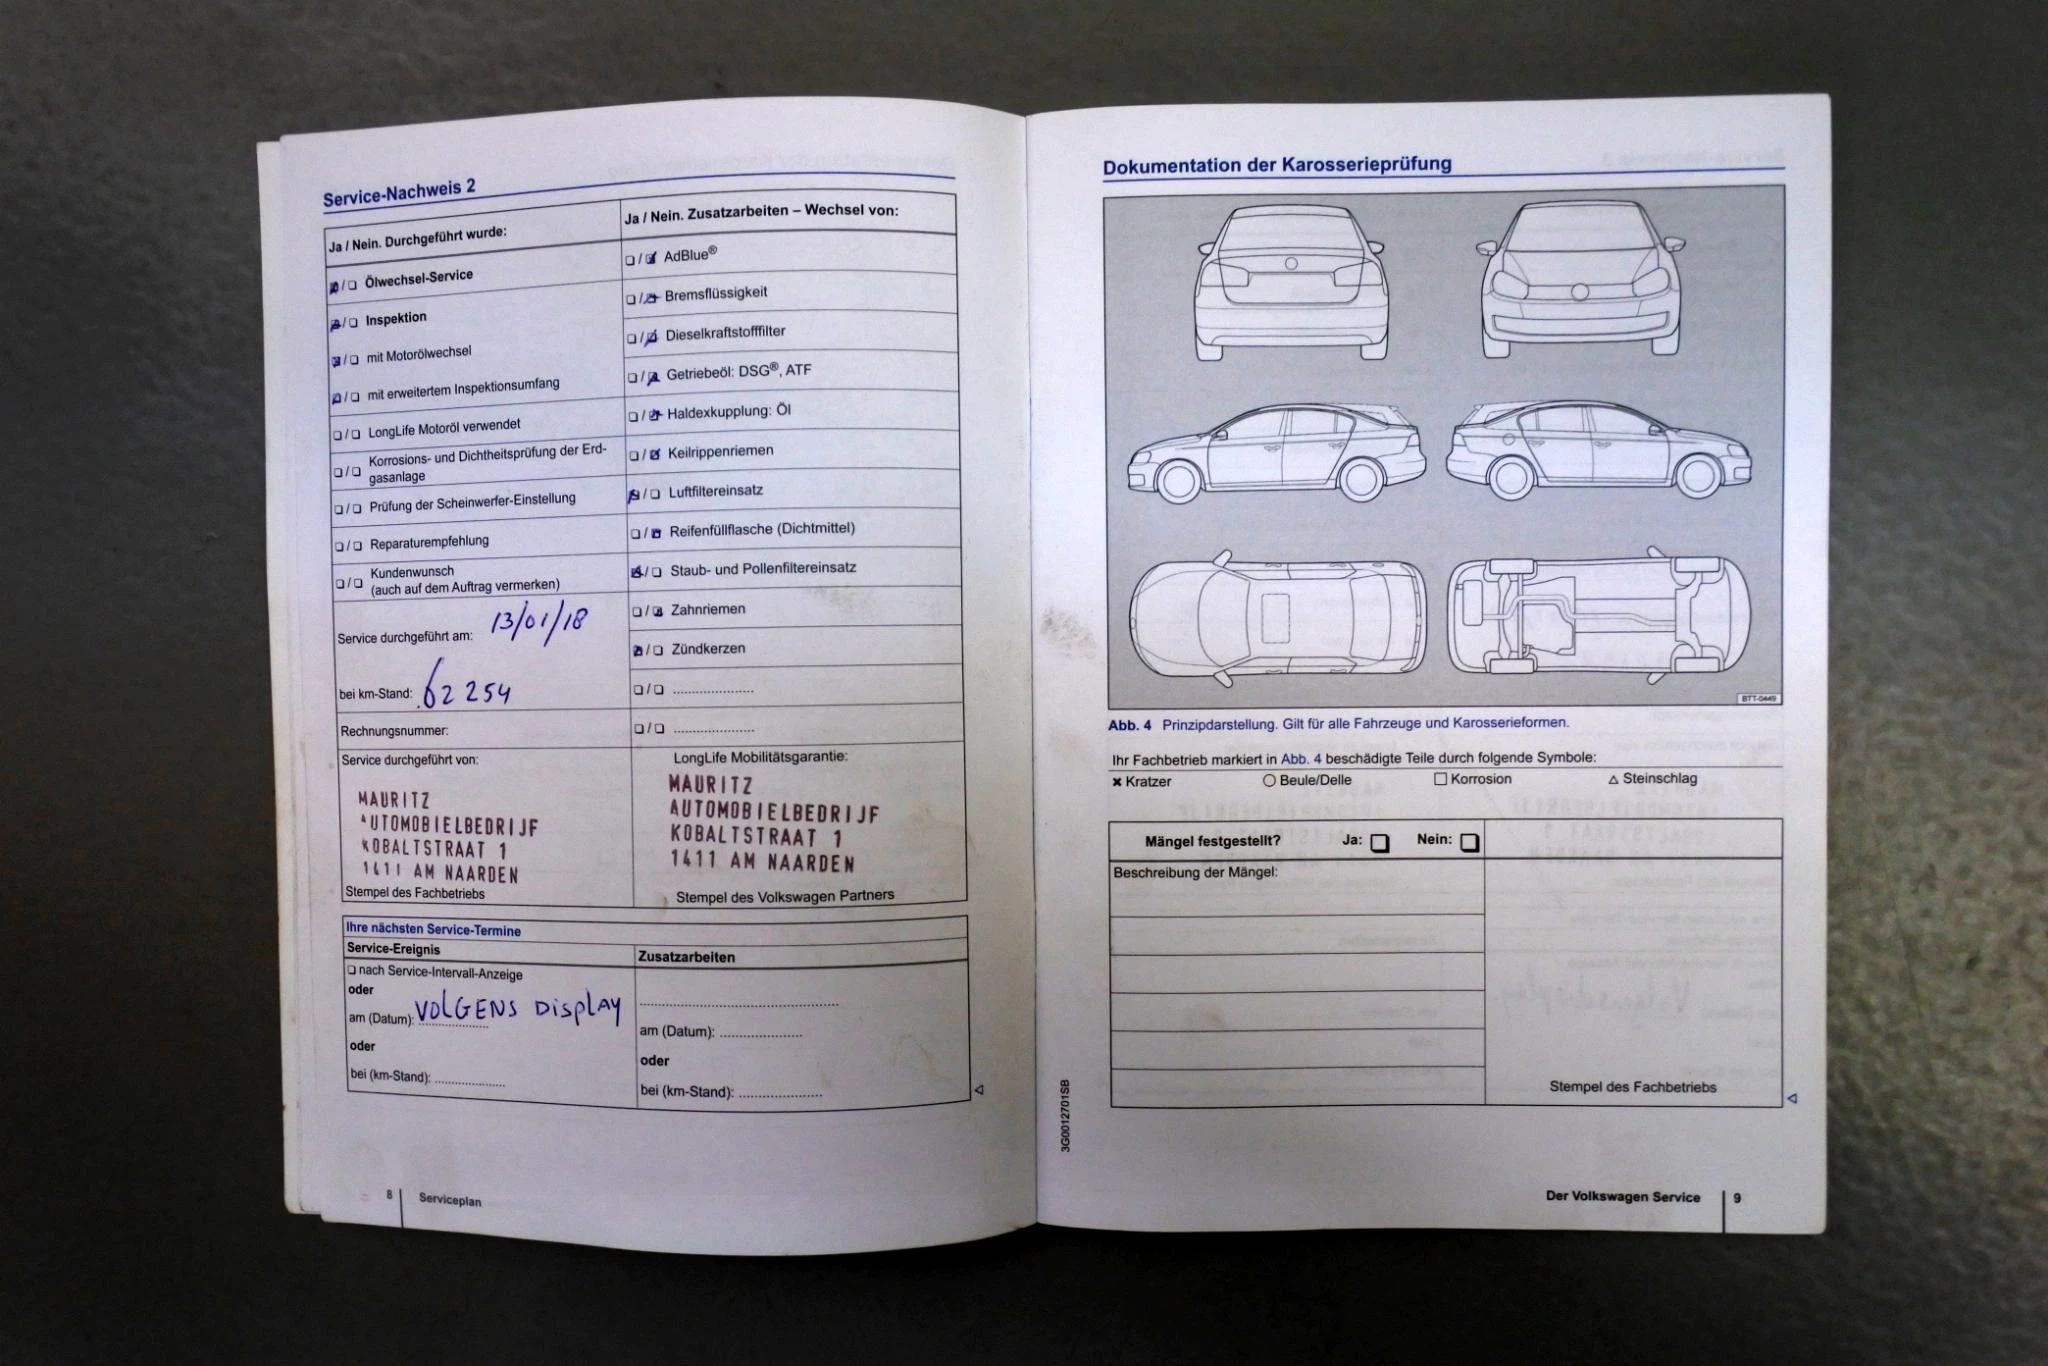 Service-Nachweis 2
Ja / Nein. Durchgeführt wurde:
❏ / ❏ Ölwechsel-Service
❏ / ❏ Inspektion
❏ / ❏ mit Motorölwechsel
❏ / ❏ mit erweitertem Inspektionsumfang
❏ / ❏ LongLife Motoröl verwendet
❏ / ❏ Korrosions- und Dichtheitsprüfung der Erd-
gasanlage
❏ / ❏ Prüfung der Scheinwerfer-Einstellung
❏ / ❏ Reparaturempfehlung
❏ / ❏ Kundenwunsch
(auch auf dem Auftrag vermerken)
Service durchgeführt am: 13/01/18
bei km-Stand: 62 254
Rechnungsnummer:
Ja / Nein. Zusatzarbeiten – Wechsel von:
❏ / ❏ AdBlue®
❏ / ❏ Bremsflüssigkeit
❏ / ❏ Dieselkraftstofffilter
❏ / ❏ Getriebeöl: DSG®, ATF
❏ / ❏ Haldexkupplung: Öl
❏ / ❏ Keilrippenriemen
❏ / ❏ Luftfiltereinsatz
❏ / ❏ Reifenfüllflasche (Dichtmittel)
❏ / ❏ Staub- und Pollenfiltereinsatz
❏ / ❏ Zahnriemen
❏ / ❏ Zündkerzen
❏ / ❏ ....................
❏ / ❏ ....................
Service durchgeführt von:
MAURITZ
AUTOMOBIELBEDRIJF
KOBALTSTRAAT 1
1411 AM NAARDEN
Stempel des Fachbetriebs
LongLife Mobilitätsgarantie:
MAURITZ
AUTOMOBIELBEDRIJF
KOBALTSTRAAT 1
1411 AM NAARDEN
Stempel des Volkswagen Partners
Ihre nächsten Service-Termine
Service-Ereignis
❏ nach Service-Intervall-Anzeige
oder
am (Datum): VOLGENS DISPLAY
oder
bei (km-Stand): ....................
Zusatzarbeiten
..................................................
am (Datum): ....................
oder
bei (km-Stand): ....................
8 Serviceplan
Dokumentation der Karosserieprüfung
BTT-0449
Abb. 4 Prinzipdarstellung. Gilt für alle Fahrzeuge und Karosserieformen.
Ihr Fachbetrieb markiert in Abb. 4 beschädigte Teile durch folgende Symbole:
✖ Kratzer ○ Beule/Delle □ Korrosion △ Steinschlag
Mängel festgestellt? Ja: ❏ Nein: ❏
Beschreibung der Mängel:
Stempel des Fachbetriebs
3G0012701SB
Der Volkswagen Service 9